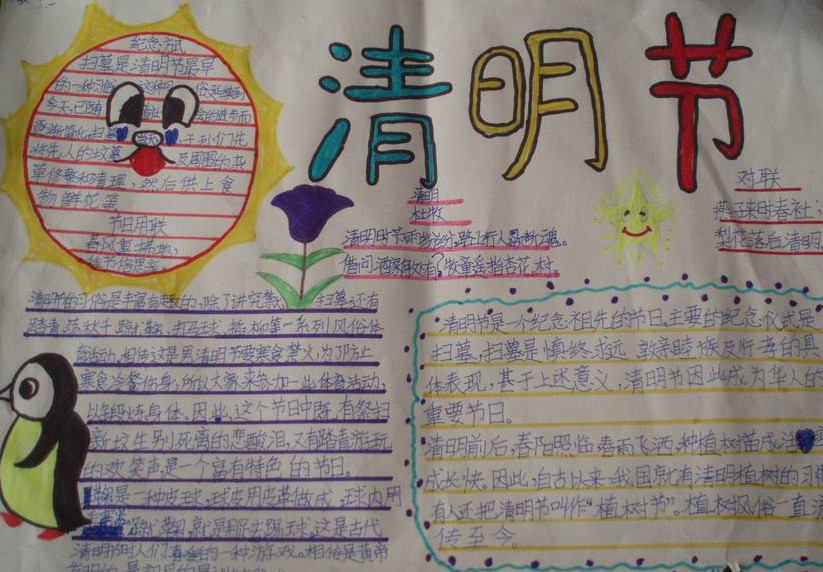 清明节
纪念方式
扫墓是清明节最早
的一种习俗 这种 俗延续到
今天,已随 会的进步而
逐渐简化,扫墓 ,子孙们先
将先人的坟墓 及周围的杂
草修整和清理,然后供上食
物鲜花等
节日用联
春风重拂地,
佳节倍思亲
清明
杜牧
清明时节雨纷纷,路上行人 断魂。
借问酒家何处有?牧童遥指杏花村
对联
燕子来时春社;
梨花落后清明
清明节的习俗是丰富有趣的,除了讲究禁 扫墓,还有
踏青 荡秋千 蹴鞠 打马球 插柳等一系列风俗体
育活动,相传这是因清明节要寒食禁火,为了防止
寒食冷餐伤身,所以大家来参加一些体育活动,
以锻炼身体。因此,这个节日中既有祭扫
新坟生别死离的悲酸泪,又有踏青游玩
的欢笑声,是一个富有特色的节日。
鞠是一种皮球,球皮用皮革做成,球内用
蹴鞠,就是用足去踢球。这是古代
清明节时人们喜爱的一种游戏。相传是黄帝
清明节是一个纪念祖先的节日,主要的纪念仪式是
扫墓,扫墓是慎终 远 敦亲睦族及行孝的具
体表现,基于上述意义,清明节因此成为华人的
重要节日。
清明前后,春阳照临,春雨飞洒,种植树苗成活
成长快。因此,自古以来,我国就有清明植树的习惯
有人还把清明节叫作“植树节”。植树风俗一直流
传至今。